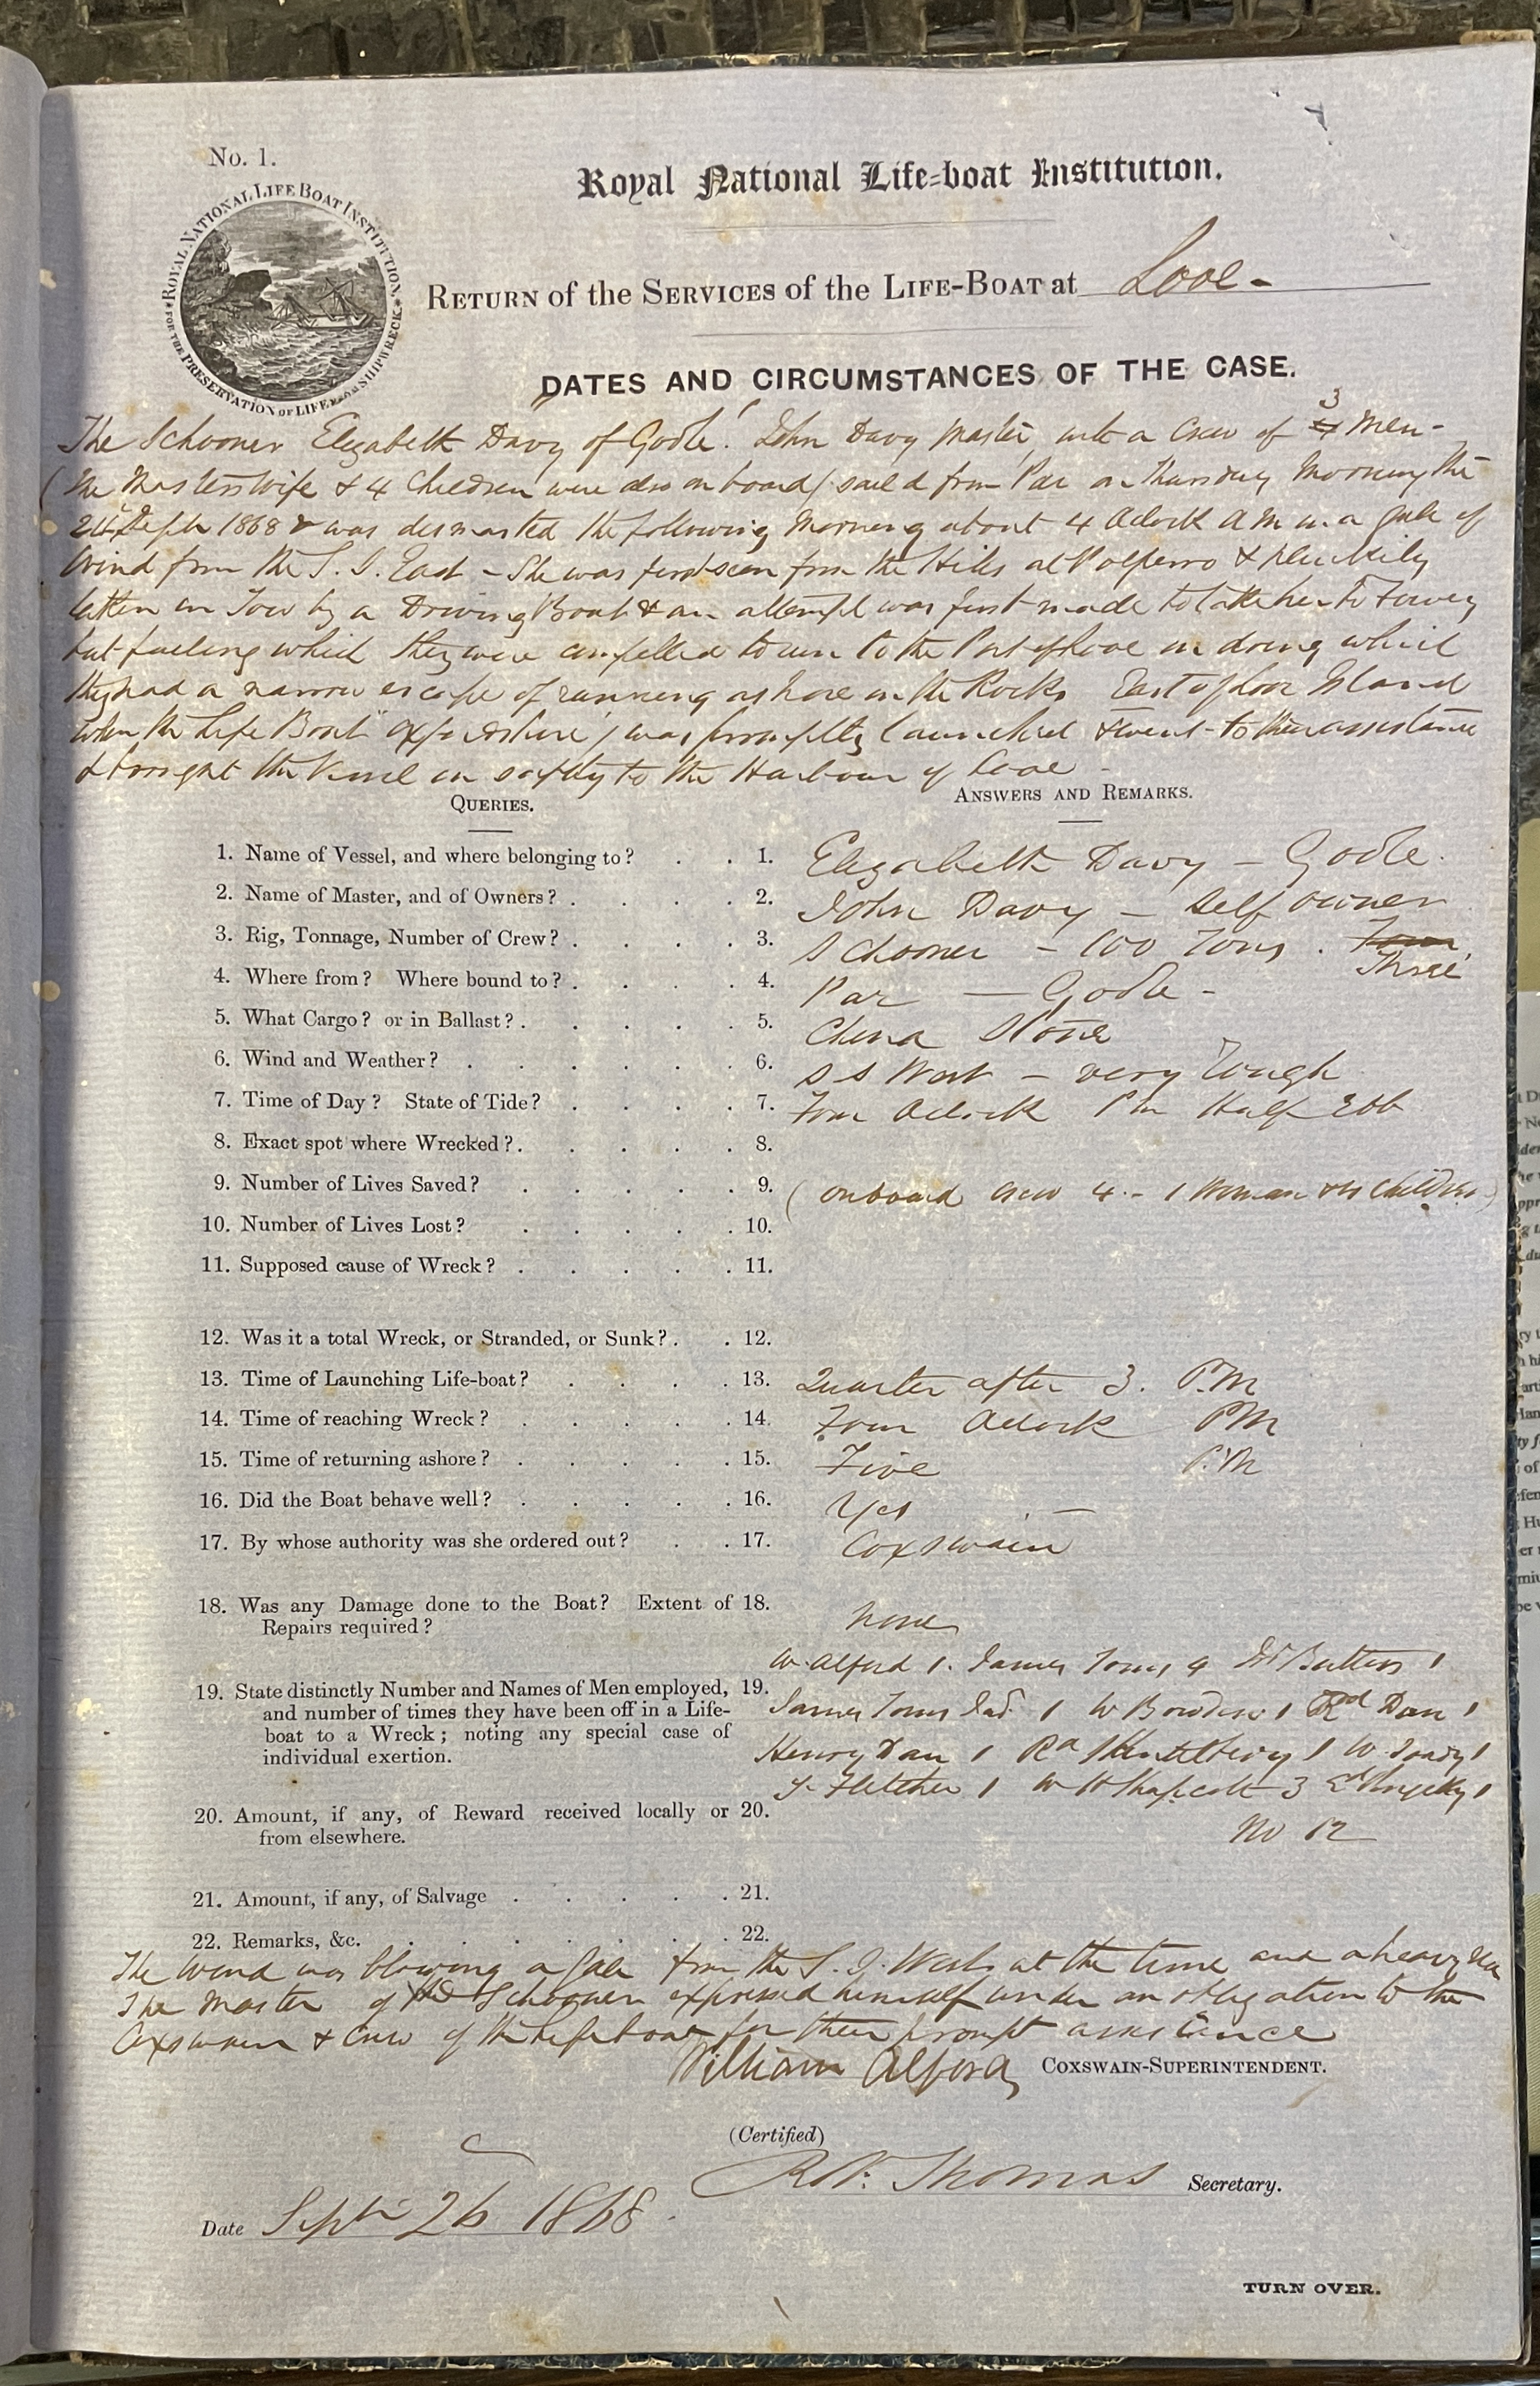 No. 1.
Royal National Life-boat Institution.
ROYAL NATIONAL LIFE BOAT INSTITUTION FOR THE PRESERVATION OF LIFE FROM SHIPWRECK.
RETURN of the SERVICES of the LIFE-BOAT at Looe -
DATES AND CIRCUMSTANCES OF THE CASE.
The Schooner Elizabeth Davy of Goole. John Davy Master, with a Crew of 3 Men -
(The Masters Wife & 4 Children were also on board) sailed from Par on Thursday Morning the
24th Sepr 1868 & was dismasted the following Morning about 4 Oclock AM in a Gale of
Wind from the S. S. East - She was first seen from the Hills at Polperro & pluckily
taken in Tow by a Driving Boat & an attempt was first made to take her to Fowey
but failing which they were compelled to run to the Port of Looe in doing which
they had a narrow escape of running ashore on the Rocks East of Looe Island
when the Life Boat "Oxfordshire" was promptly launched & went to their assistance
& brought the Vessel in safety to the Harbour of Looe -
QUERIES.
ANSWERS AND REMARKS.
1. Name of Vessel, and where belonging to? 1. Elizabeth Davy - Goole.
2. Name of Master, and of Owners? 2. John Davy - Self owner
3. Rig, Tonnage, Number of Crew? 3. Schooner - 100 Tons. Four Three
4. Where from? Where bound to? 4. Par - Goole -
5. What Cargo? or in Ballast? 5. China Stone
6. Wind and Weather? 6. S S West - very Rough
7. Time of Day? State of Tide? 7. Four Oclock PM Half Ebb
8. Exact spot where Wrecked? 8.
9. Number of Lives Saved? 9. (onboard crew 4 - 1 Woman & 4 Children)
10. Number of Lives Lost? 10.
11. Supposed cause of Wreck? 11.
12. Was it a total Wreck, or Stranded, or Sunk? 12.
13. Time of Launching Life-boat? 13. Quarter after 3. P.M
14. Time of reaching Wreck? 14. Four Oclock PM
15. Time of returning ashore? 15. Five P.M
16. Did the Boat behave well? 16. Yes -
17. By whose authority was she ordered out? 17. Coxswain
18. Was any Damage done to the Boat? Extent of 18. None
Repairs required?
W. Alford 1. James Toms 4 Butters 1
19. State distinctly Number and Names of Men employed, 19.
and number of times they have been off in a Life-
James Toms 1 W Bowden 1 Rd Dan 1
boat to a Wreck; noting any special case of
individual exertion.
Henry Dan 1 Rd 1 W Toms 1
Fletcher 1 W H Shapcott 3 1
20. Amount, if any, of Reward received locally or 20.
from elsewhere.
No 12
21. Amount, if any, of Salvage 21.
22. Remarks, &c. 22.
The Wind was blowing a Gale from the S. S. West at the time and a heavy Sea
The Master of the Schooner expressed himself under an obligation to the
Coxswain & Crew of the Lifeboat for their prompt assistance
William Alford COXSWAIN-SUPERINTENDENT.
(Certified)
Thomas Secretary.
Date Septr 26 1868.
TURN OVER.